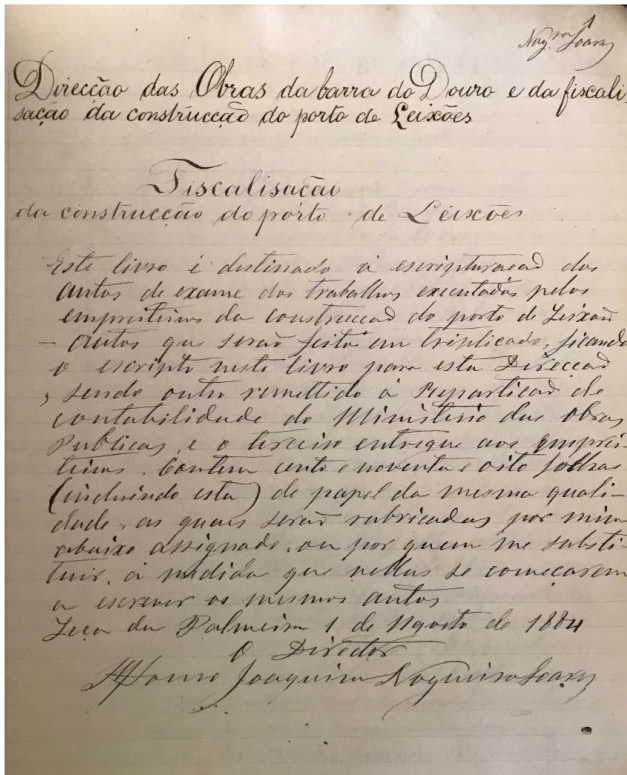 Nog.ra Soares
Direcção das Obras da barra do Douro e da fiscali-
sação da construcção do porto de Leixões
Fiscalisação
da construcção do porto de Leixões
Este livro é destinado á escripturacaõ dos
autos de exame dos trabalhos executados pelos
empreiteiros da construccaõ do porto de Leixões
— autos que seraõ feitos em triplicado, ficando
o escripto neste livro para esta Direccaõ
, sendo outro remettido á Reparticaõ de
contabilidade do Ministerio das Obras
Publicas, e o terceiro entregue aos emprei-
teiros. Contem cento e noventa e oito folhas
(incluindo esta) de papel da mesma quali-
dade, as quaes seraõ rubricadas por mim
abaixo assignado, ou por quem me substi-
tuir, á medida que nellas se começarem
a escrever os mesmos autos
Leça da Palmeira 1 de Agosto de 1884
O Director
Affonso Joaquim Nogueira Soares